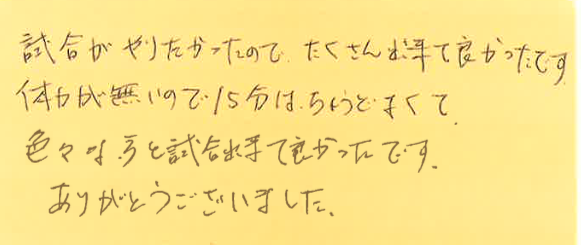 試合がやりたかったので、たくさん出来て良かったです
体力が無いので15分は、ちょうどよくて、
色々な方と試合出来て良かったです。
ありがとうございました。